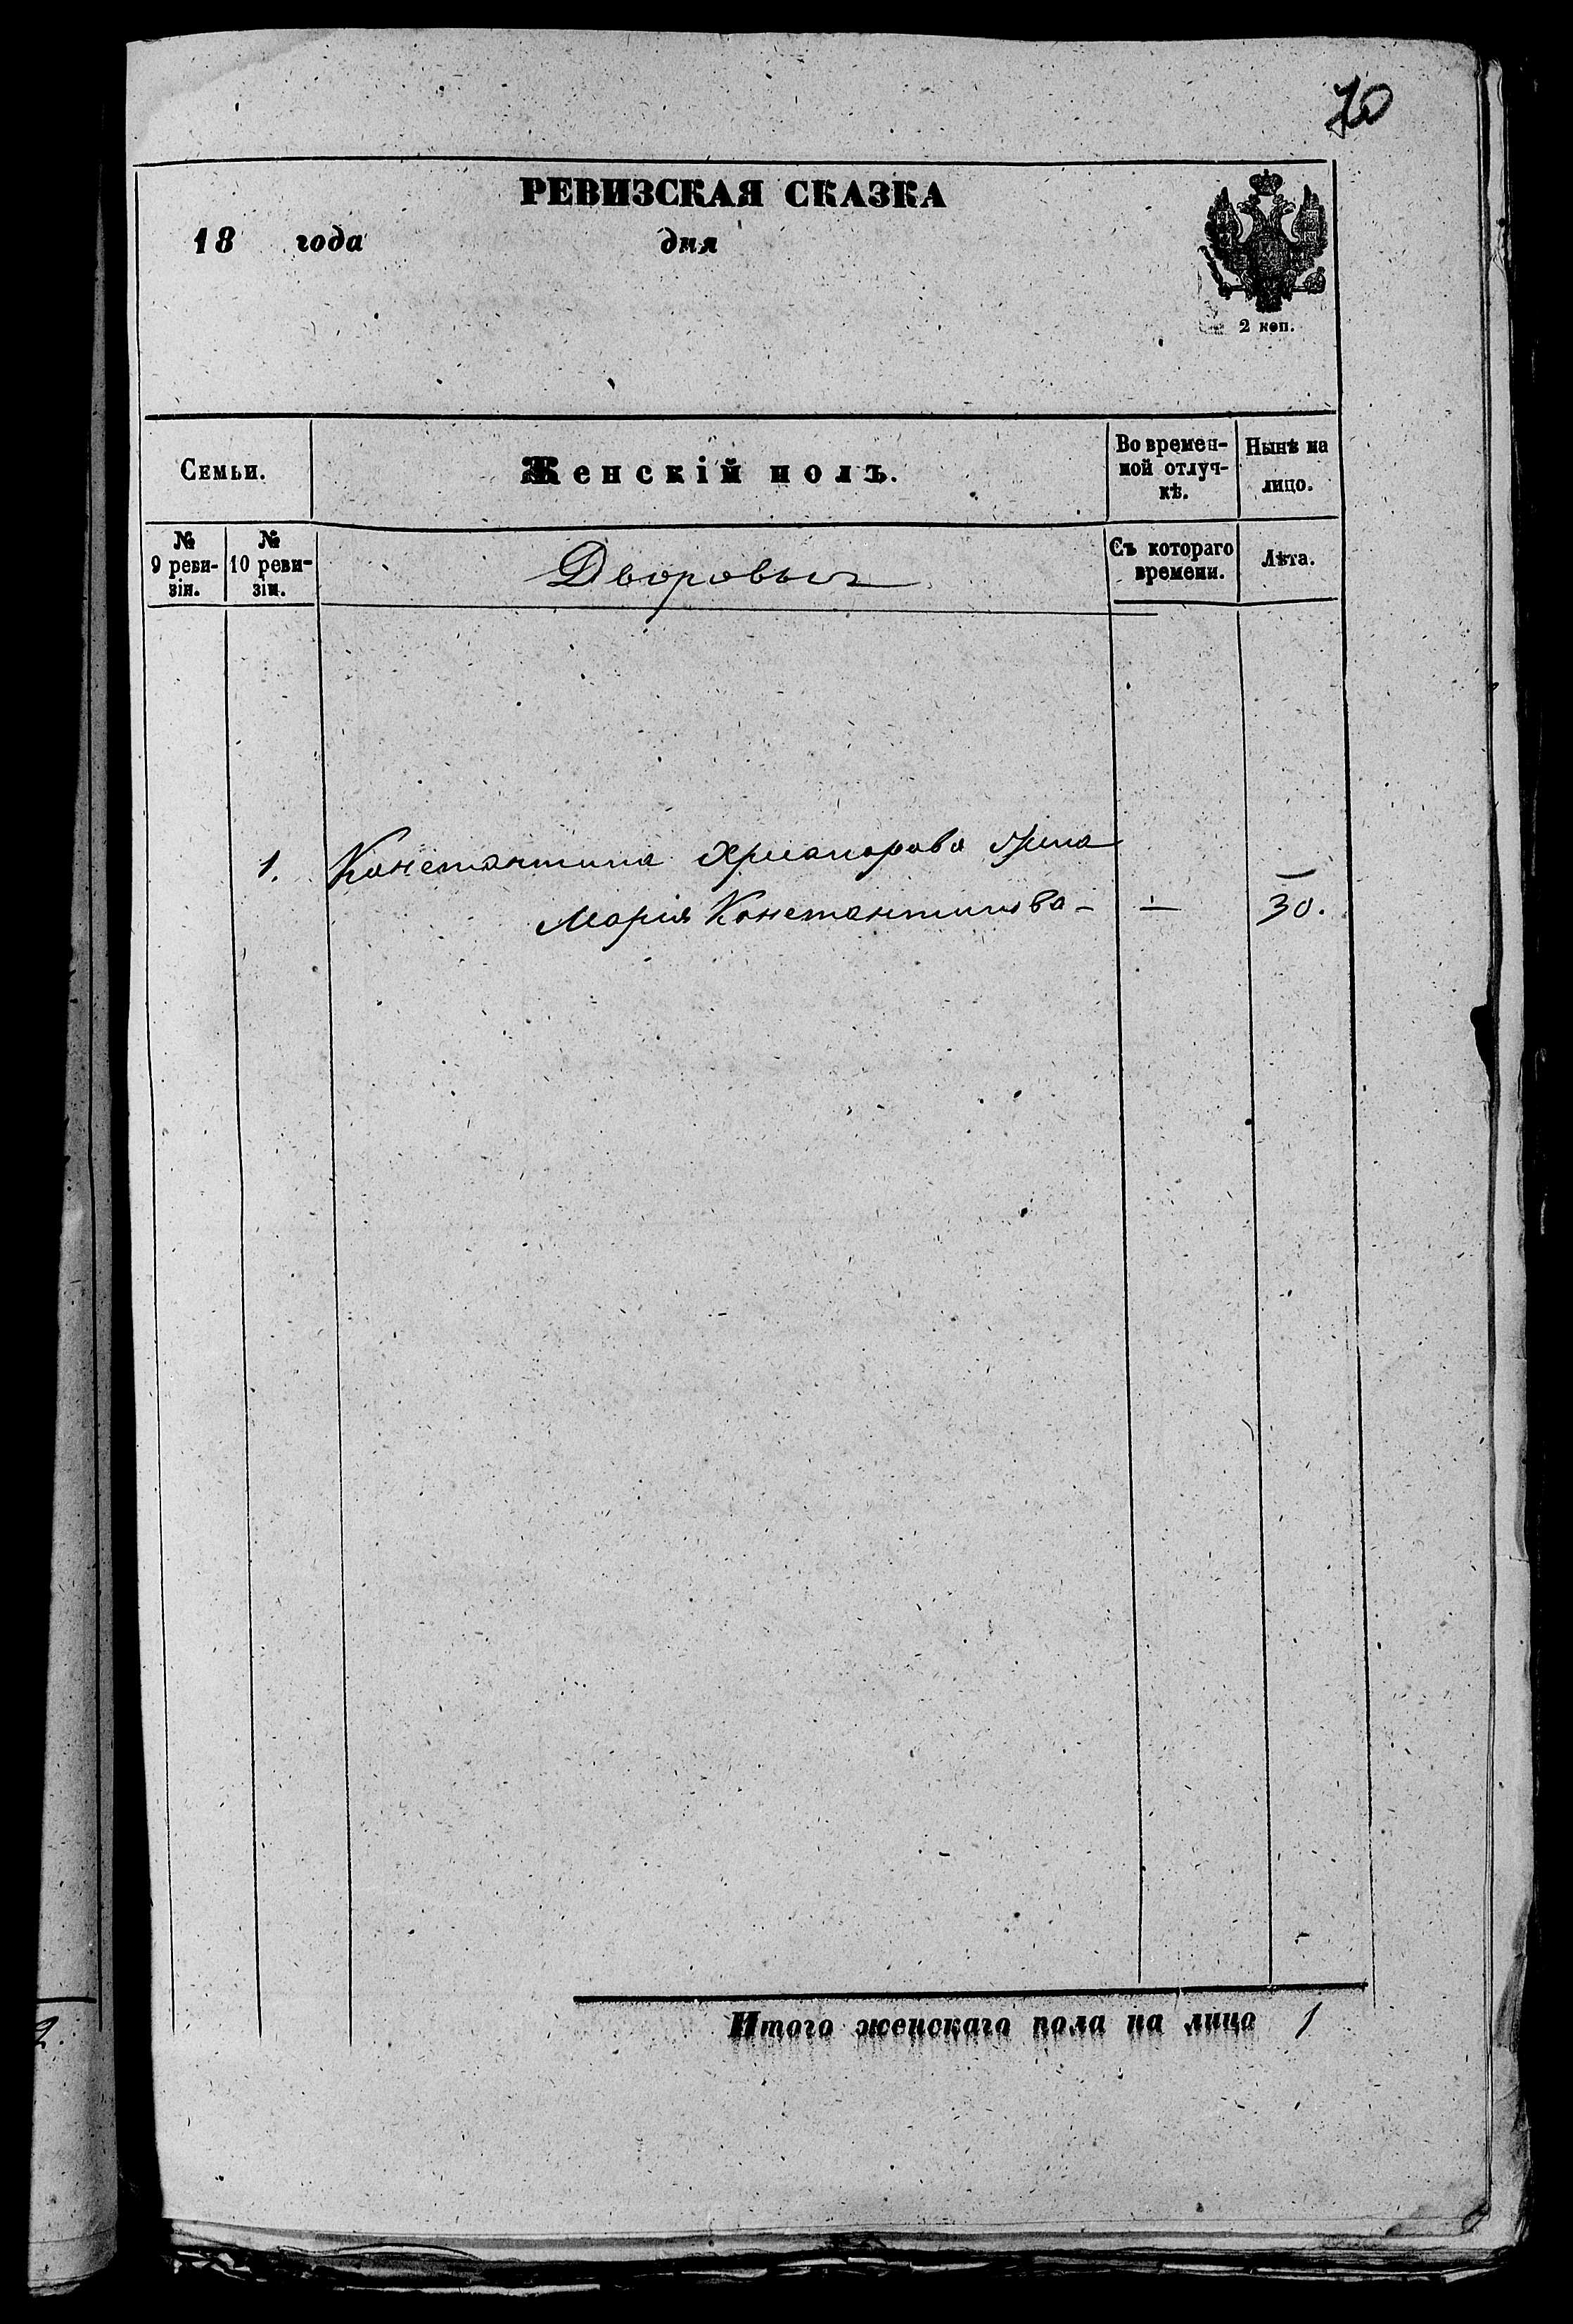 70
РЕВИЗСКАЯ СКАЗКА
18 года дня
2 коп.
Семьи.
Женскій полъ.
Во времен-
ной отлуч-
кѣ.
Нынѣ на
лицо.
№
9 реви-
зіи.
№
10 реви-
зіи.
Дворовыхъ
Съ котораго
времени.
Лѣта.
1. Константина жена
Марія Константинова - — 30.
Итого женскаго пола на лицо 1